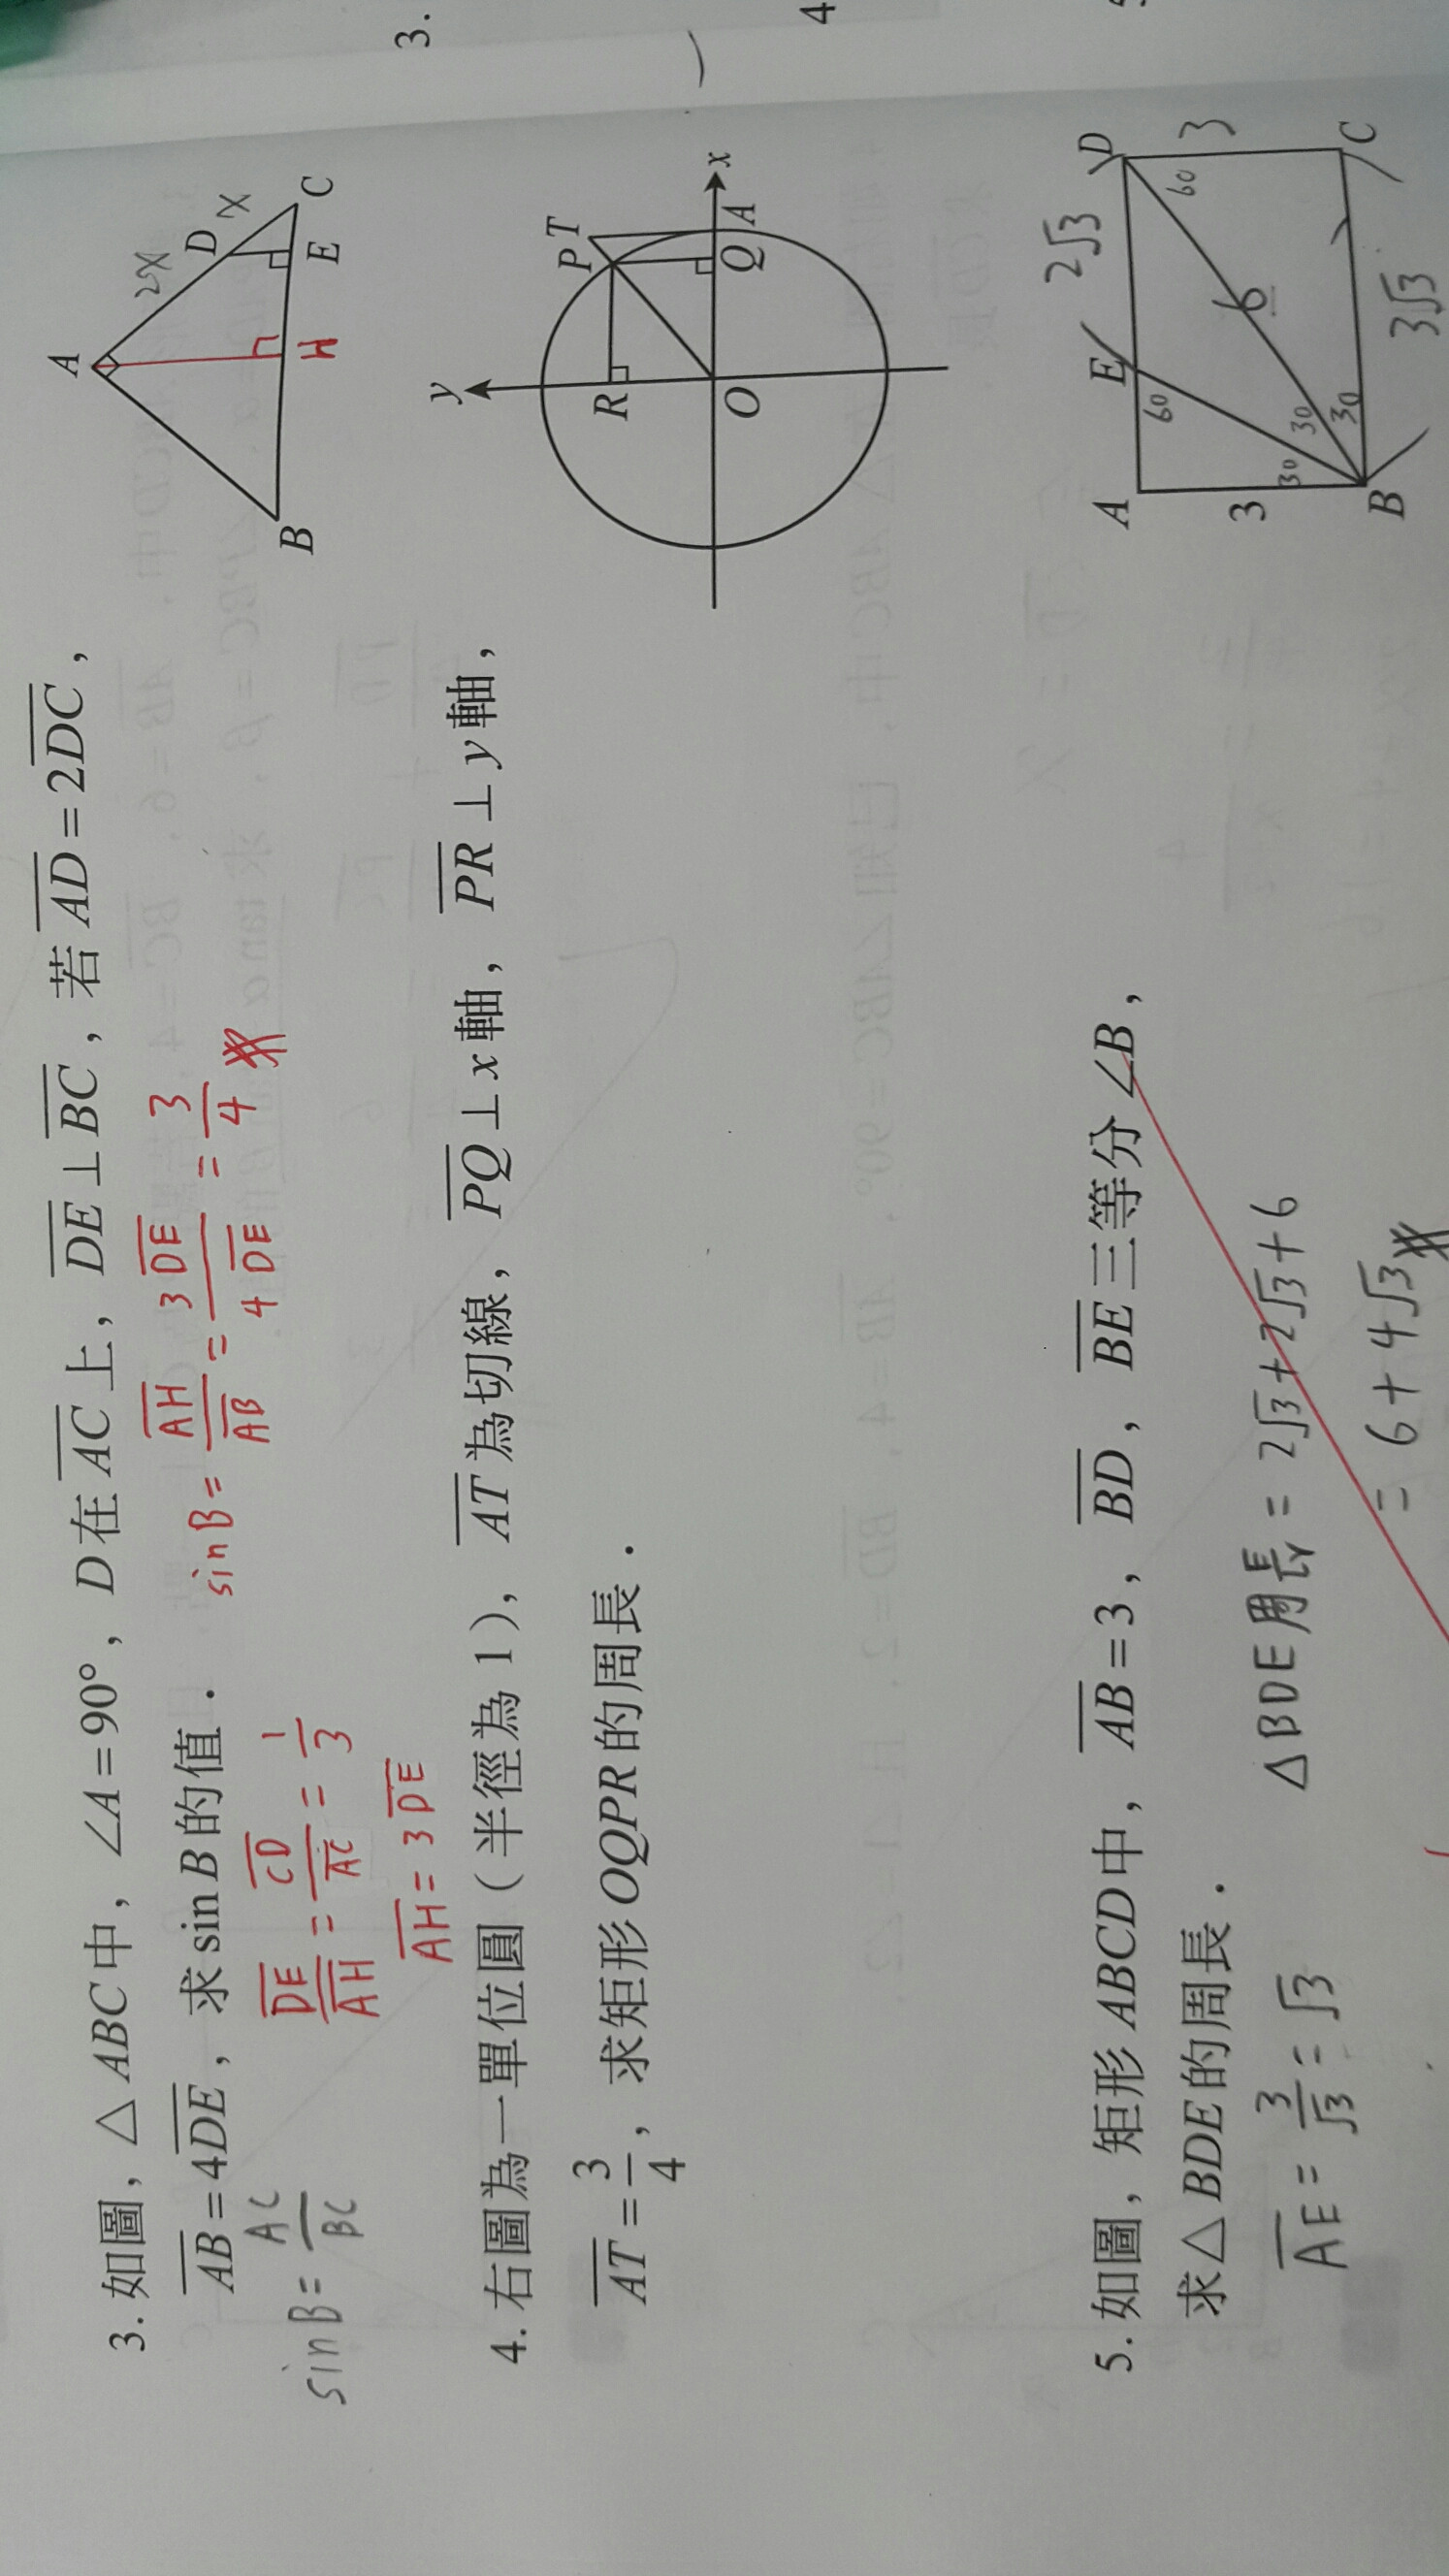 3. 如圖，△ABC中，∠A=90°，D在AC上，DE⊥BC，若AD=2DC，
AB=4DE，求sinB的值．
sinB = AC/BC
DE/AH = CD/AC = 1/3
AH = 3DE
sinB = AH/AB = 3DE/4DE = 3/4
A
B
C
D
E
H
2x
x
4. 右圖為一單位圓（半徑為1），AT為切線，PQ⊥x軸，PR⊥y軸，
AT=3/4，求矩形OQPR的周長．
y
x
R
P
T
O
Q
A
5. 如圖，矩形ABCD中，AB=3，BD，BE三等分∠B，
求△BDE的周長．
AE = 3/√3 = √3
△BDE周長 = 2√3+2√3+6
= 6+4√3
A
E
2√3
D
60
60
3
30
30
30
6
3
B
3√3
C
3.
4